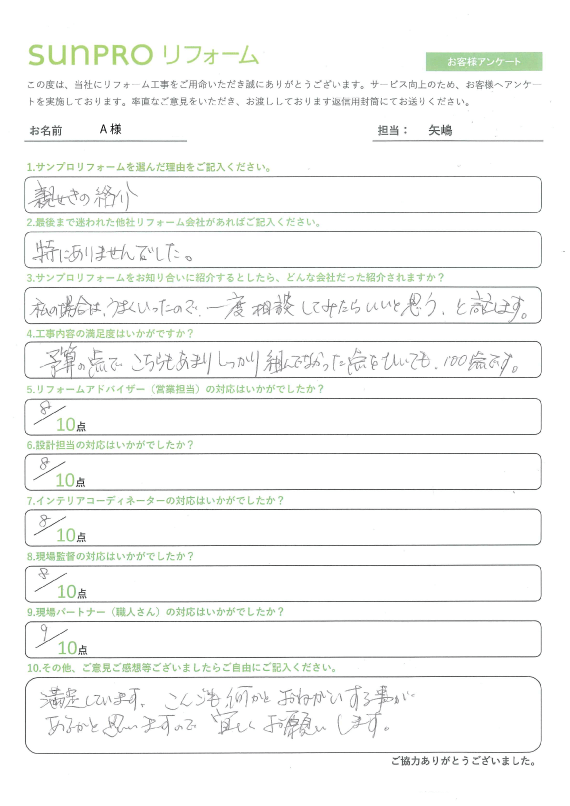 SUNPRO リフォーム
お客様アンケート
この度は、当社にリフォーム工事をご用命いただき誠にありがとうございます。サービス向上のため、お客様へアンケー
トを実施しております。率直なご意見をいただき、お渡ししております返信用封筒にてお送りください。
お名前 A様 担当： 矢嶋
1.サンプロリフォームを選んだ理由をご記入ください。
親せきの紹介
2.最後まで迷われた他社リフォーム会社があればご記入ください。
特にありませんでした。
3.サンプロリフォームをお知り合いに紹介するとしたら、どんな会社だった紹介されますか？
私の場合は、うまくいったので、一度相談してみたらいいと思う、と話します。
4.工事内容の満足度はいかがですか？
予算の点で こちらもあまりしっかり組んでなかった点をひいても、100点です。
5.リフォームアドバイザー（営業担当）の対応はいかがでしたか？
8/10点
6.設計担当の対応はいかがでしたか？
8/10点
7.インテリアコーディネーターの対応はいかがでしたか？
8/10点
8.現場監督の対応はいかがでしたか？
8/10点
9.現場パートナー（職人さん）の対応はいかがでしたか？
9/10点
10.その他、ご意見ご感想等ございましたらご自由にご記入ください。
満足しています。 こんごも何かとおねがいする事が
あるかと思いますので 宜しくお願いします。
ご協力ありがとうございました。